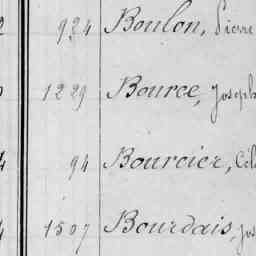 924 Boulon, Pierre
1229 Bource, Joseph
94 Bourcier, Cél
1507 Bourdais, Jos